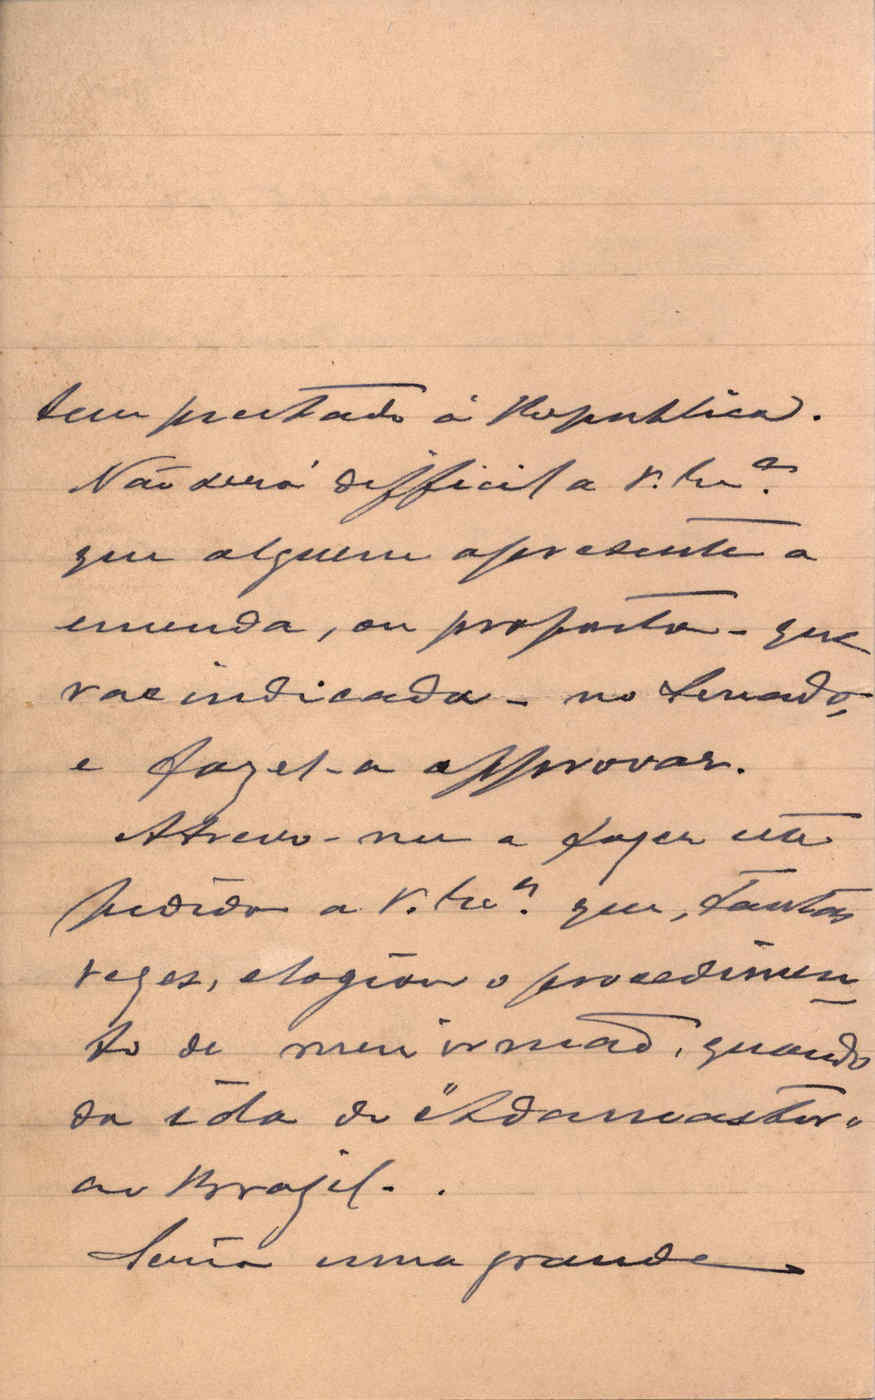 tem prestado á Republica.
Não será difficil a V. Exª.
que alguem apresente a
emenda, ou proposta - que
vae indicada - no Senado,
e fazel-a approvar.
Atrevo-me a fazer este
pedido a V. Exª. que, tantas
vezes, elogiou o procedimen-
to de meu irmão, quando
da ida do "Adamastor"
ao Brazil.
Seria uma grande